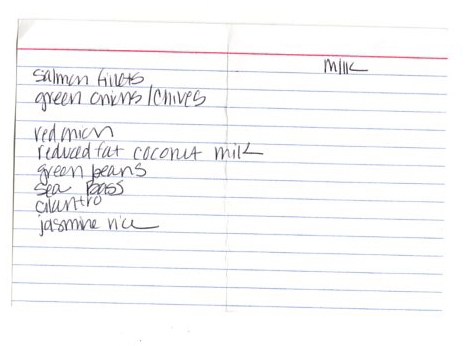 milk
salmon fillets
green onions/chives
red onion
reduced fat coconut milk
green beans
sea bass
cilantro
jasmine rice